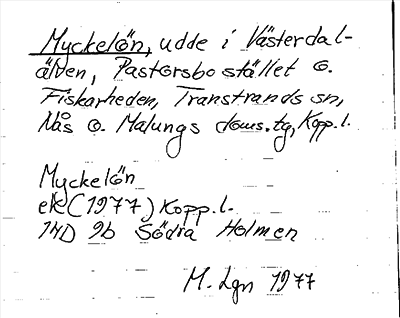 Myckelön, udde i Västerdal-
älven, Pastorsbostället o.
Fiskarheden, Transtrands sn,
Nås o. Malungs doms. tg, Kopp. l.
Myckelön
ek (1977) Kopp. l.
14D 9b Södra Holmen
M. Lgn 1977